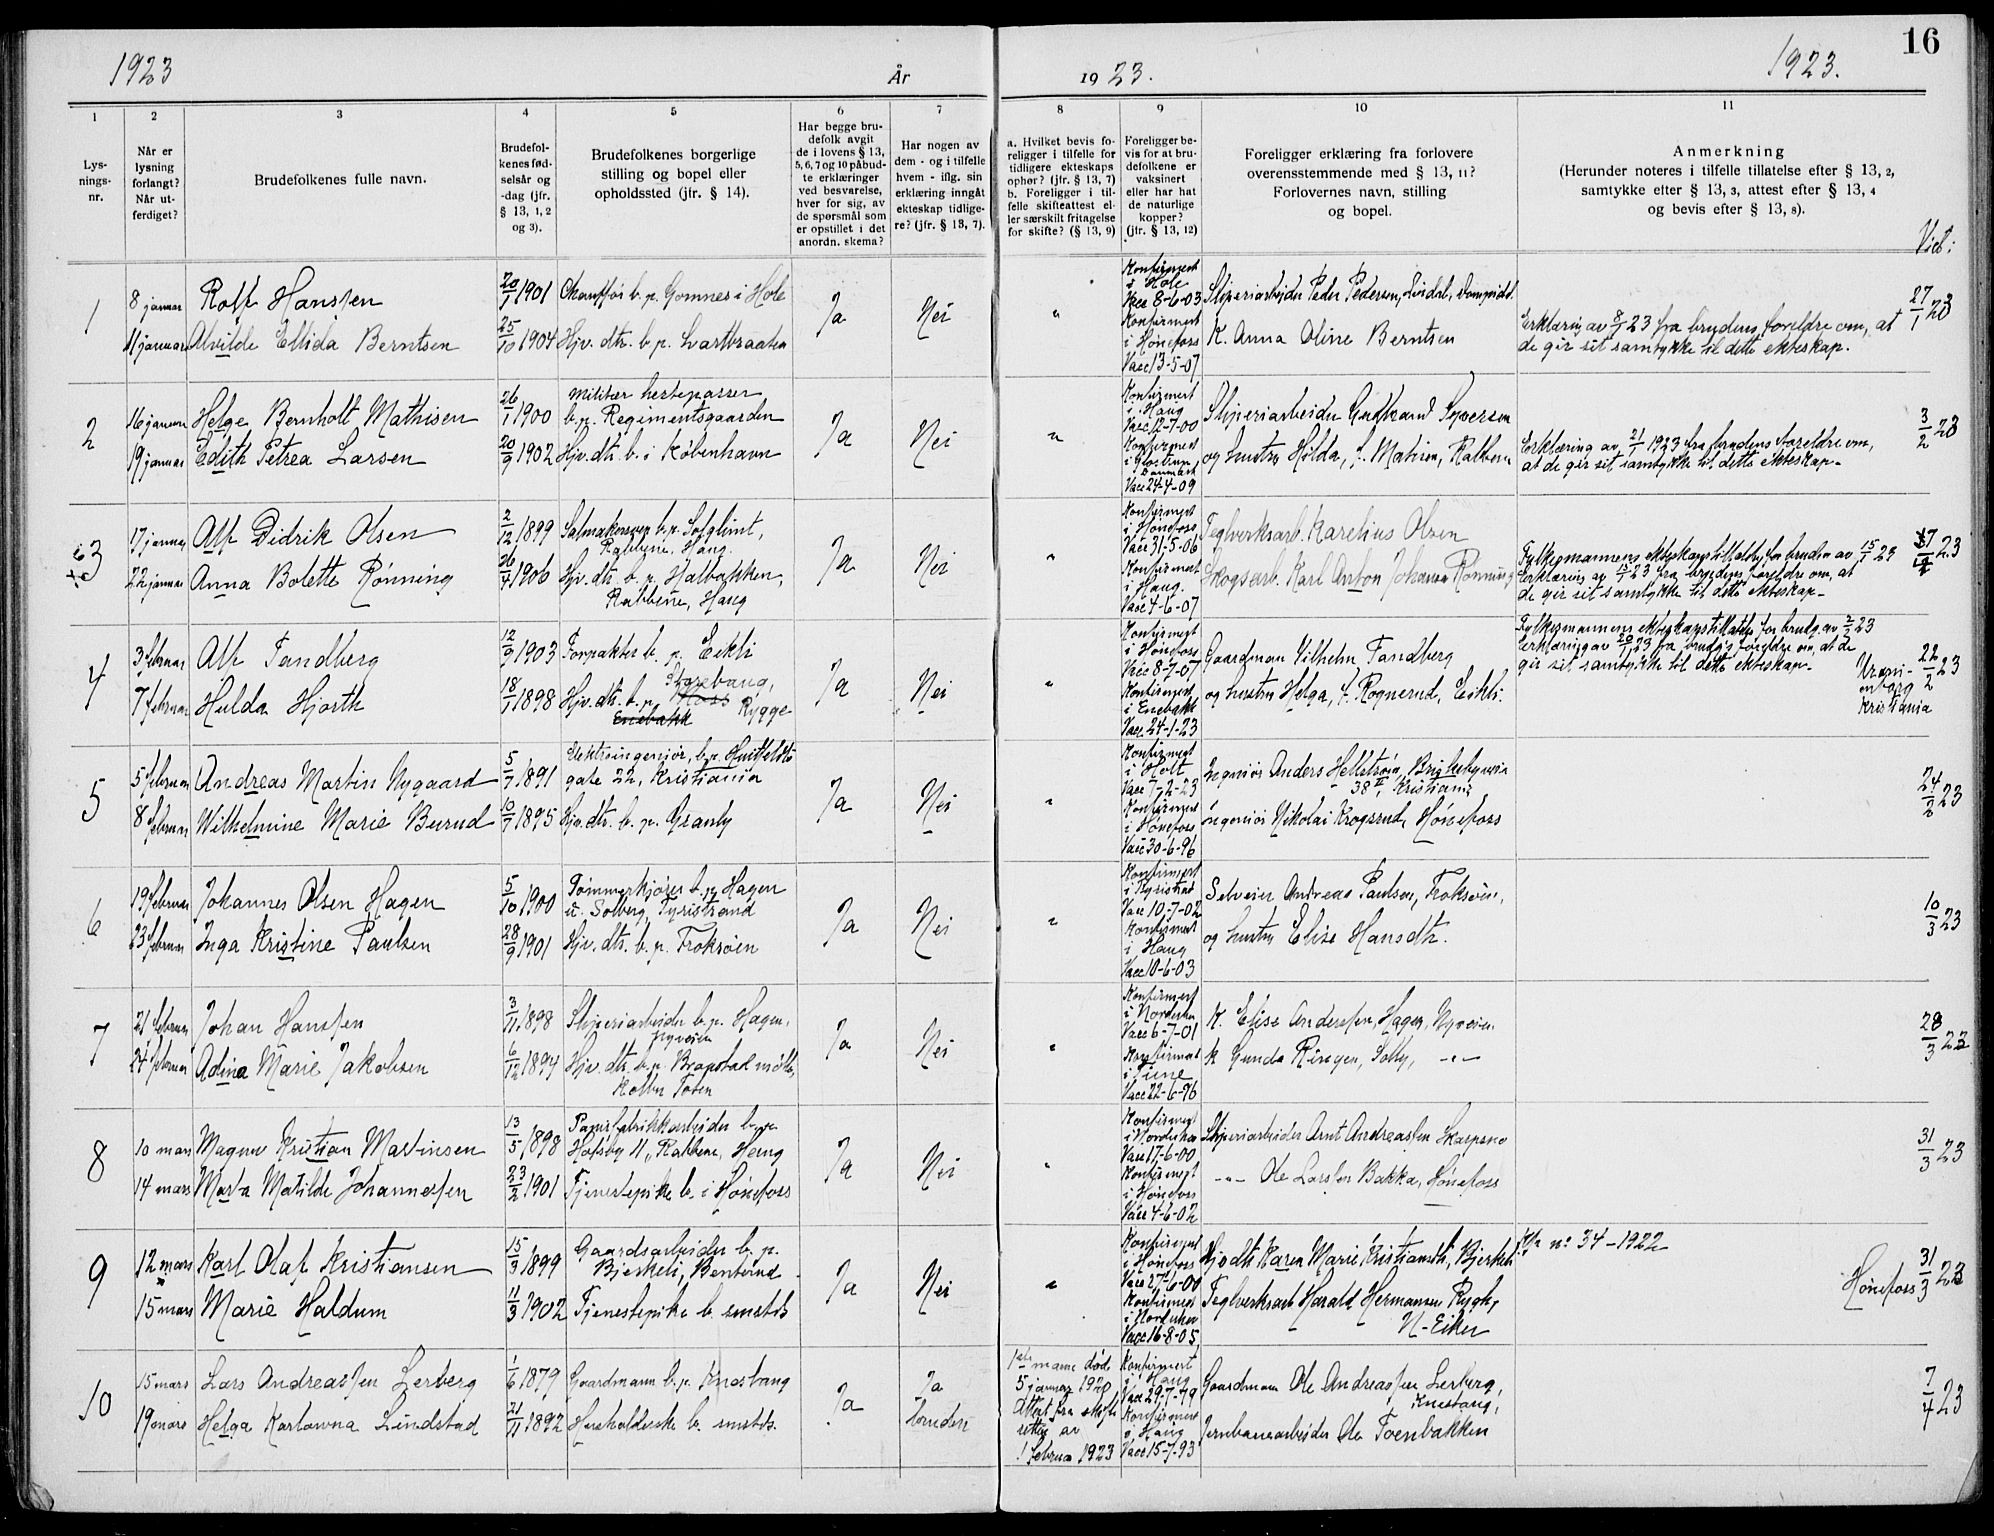 16
1923
År
19 23.
1923.
1
Lys-
nings-
nr.
2
Når er
lysning
forlangt?
Når ut-
ferdiget?
3
Brudefolkenes fulle navn.
4
Brudefol-
kenes fød-
selsår og
-dag (jfr.
§ 13, 1, 2
og 3).
5
Brudefolkenes borgerlige
stilling og bopel eller
opholdssted (jfr. § 14).
6
Har begge bru-
defolk avgit
de i lovens § 13,
5, 6, 7 og 10 påbud-
te erklæringer
ved besvarelse,
hver for sig, av
de spørsmål som
er opstillet i det
anordn. skema?
7
Har nogen av
dem - og i tilfelle
hvem - iflg. sin
erklæring inngåt
ekteskap tidlige-
re? (jfr. § 13, 7).
8
a. Hvilket bevis fo-
religger i tilfelle for
tidligere ekteskaps
ophør? (jfr. § 13, 7)
b. Foreligger i til-
felle skifteattest el-
ler særskilt fritagelse
for skifte? (§ 13, 9)
9
Foreligger be-
vis for at bru-
defolkene er
vaksinert
eller har hat
de naturlige
kopper?
(jfr. § 13, 12)
10
Foreligger erklæring fra forlovere
overensstemmende med § 13, 11?
Forlovernes navn, stilling
og bopel.
11
Anmerkning
(Herunder noteres i tilfelle tillatelse efter § 13, 2,
samtykke efter § 13, 3, attest efter § 13, 4
og bevis efter § 13, 8).
Viet:
1
8 januar
Rolf Hanssen
20/1 1901
Chauffør b. p. Gomnes i Hole
Ja
Nei
"
Konfirmert
i Hole
Vacc 8-6-03
Sliperiarbeider Peder Pedersen,
27/1 23
11 januar
Alvilde Ellida Berntsen
25/10 1904
Hjv. dtr. b. p. Svartbraaten
Konfirmert
i Hønefoss
Vacc 13-5-07
K. Anna Oline Berntsen
Erklæring av 8/1 23 fra brudens foreldre om, at
de gir sit samtykke til dette ekteskap.
2
16 januar
Helge Bernholt Mathisen
26/1 1900
Militær hestepasser
b. p. Regimentsgaarden
Ja
Nei
"
Konfirmert
i Haug
Vacc 12-7-00
Sliperiarbeider Gulbrand Syversen
3/2 23
19 januar
Edith Petrea Larsen
20/9 1902
Hjv. dtr. b. i København
Konfirmert
i Glostrup
Danmark
Vacc 24-4-09
og hustru Hilda, f. Matisen,
Erklæring av 21/1 1923 fra brudens foreldre om,
at de gir sit samtykke til dette ekteskap.
3
17 januar
Alf Didrik Olsen
2/12 1899
Salmakersvenn b. p. Solglimt,
Rabbene, Haug.
Ja
Nei
"
Konfirmert
i Hønefoss
Vacc 31-5-06
Teglverksarb. Karelius Olsen
22 januar
Anna Bolette Rønning
26/4 1906
Hjv. dtr. b. p. Halbakken,
Rabbene, Haug
Konfirmert
i Haug.
Vacc 4-6-07
Skogsarb. Karl Anton Johansen Rønning
Fylkesmannens ekteskapstillatelse for bruden av 15/1 23
Erklæring av 15/1 23 fra brudens foreldre om, at
de gir sit samtykke til dette ekteskap.
4
3 februar
Alf Tandberg
12/9 1903
Forpakter b. p. Eikli
Ja
Nei
"
Konfirmert
i Hønefoss
Vacc 8-7-07
Gaardman Vilhelm Tandberg
Fylkesmannens ekteskapstillatelse for brudg. av 2/2 23
Erklæring av 20/1 23 fra brudg.s foreldre om, at de
gir sit samtykke til dette ekteskap.
Urani-
enborg
Kristiania
22/2 23
7 februar
Hulda Hjorth
18/1 1898
Hjv. dtr. b. p. Moss Rygge
Enebakk
Konfirmert
i Enebakk
Vacc 24-1-23
og hustru Helga, f. Rognerud, Eikli.
5
5 februar
Andreas Martin Nygaard
5/7 1891
Elektroingeniør, b. p. Huitfeldts
gate 22, Kristiania
Ja
Nei
"
Konfirmert
i Holt
Vacc 7-2-23
Ingeniør Anders Hellstrøm,
38 II, Kristiania
24/2 23
8 februar
Wilhelmine Marie Burud
10/7 1895
Hjv. dtr. b. p. Granly
Konfirmert
i Hønefoss
Vacc 30-6-96
Ingeniør Nikolai Krogsrud, Hønefoss
6
19 februar
Johannes Olsen Hagen
5/10 1900
Tømmerkjører b. p. Hagen
u. Solberg, Tyristrand
Ja
Nei
"
Konfirmert
i Tyristrand
Vacc 10-7-02
Selveier Andreas Paulsen, Froksøien,
10/3 23
23 februar
Inga Kristine Paulsen
28/9 1901
Hjv. dtr. b. p. Froksøien
Konfirmert
i Haug
Vacc 10-6-03
og hustru Elise Hansdtr.
7
21 februar
Johan Hanssen
3/11 1898
Sliperiarbeider b. p. Hagen,
Nyveien
Ja
Nei
"
Konfirmert
i Norderhov
Vacc 6-7-01
K. Elise Anderssen, Hagen, Nyveien
28/3 23
24 februar
Adina Marie Jakobsen
6/12 1894
Hjv. dtr. b. p. Brapstad mølle,
Kolbu Toten
Konfirmert
i Tune
Vacc 22-6-96
K Gunda Ringen, Solly, -"-
8
10 mars
Magnus Kristian Martinsen
13/5 1898
Papirfabrikkarbeider b. p.
Hofsby II, Rabbene, Haug
Ja
Nei
"
Konfirmert
i Norderhov
Vacc 17-6-00
Sliperiarbeider Arnt Andreassen Skarpsno
31/3 23
14 mars
Marta Matilde Johannessen
23/2 1901
Tjenestepike b. i Hønefoss
Konfirmert
i Hønefoss
Vacc 4-6-02
-"- Ole Larssen Bakka, Hønefoss
9
12 mars
Karl Olaf Kristiansen
15/3 1899
Gaardsarbeider b. p.
Bjerkeli, Benterud
Ja
Nei
"
Konfirmert
i Hønefoss
Vacc 27-6-00
Hjv dtr Karen Marie Kristiansdtr, Bjerkeli
no 34-1922
Hønefoss
31/3 23
15 mars
Marie Haldum
11/3 1902
Tjenestepike b. smstds
Konfirmert
i Norderhov
Vacc 16-8-05
Teglverksarb Harald Hermansen Rygh,
N-Eiker
10
15 mars
Lars Andreassen Lerberg
1/6 1879
Gaardmann b. p. Knestang
Ja
Ja
bruden
1ste mann død
5 januar 1920
Attest fra skifte
retten av
1 februar 1923
Konfirmert
i Haug
Vacc 29-7-79
Gaardmann Ole Andreassen Lerberg,
Knestang,
7/4 23
19 mars
Helga Karlovna Lindstad
21/11 1892
Husholderske b. smstds.
Konfirmert
i Haug
Vacc 15-7-93
Jernbanearbeider Ole Toenbakken